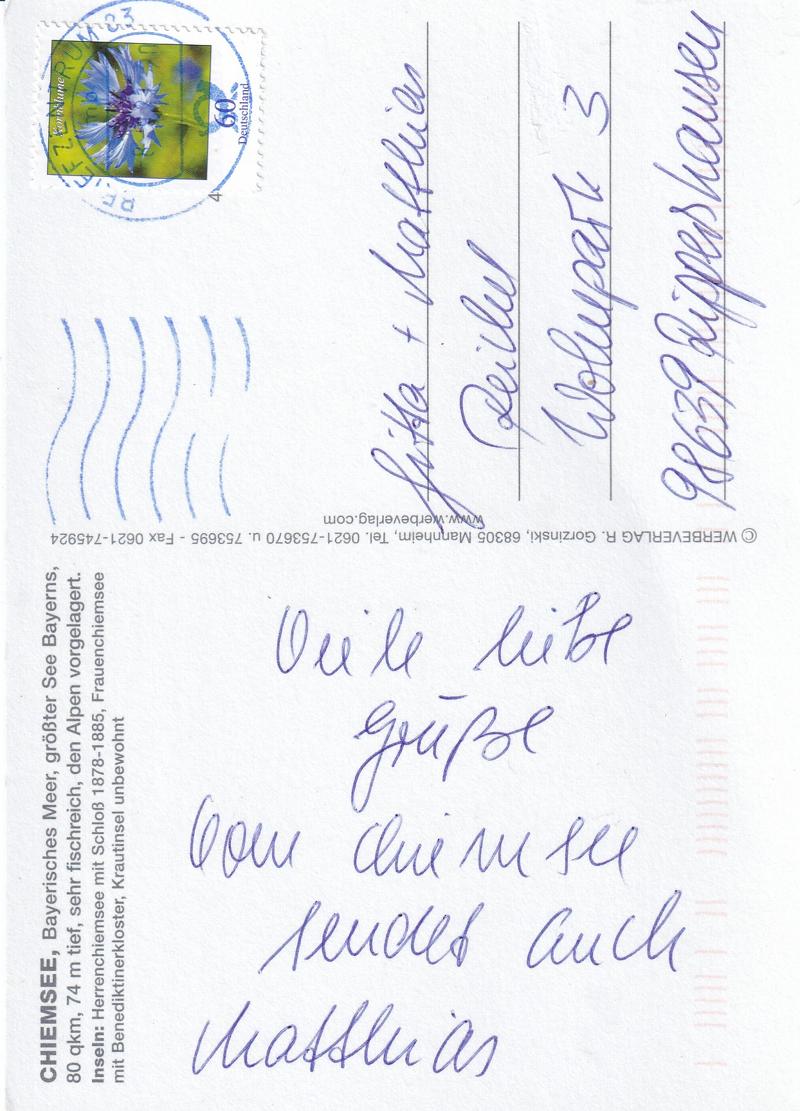 CHIEMSEE, Bayerisches Meer, größter See Bayerns,
80 qkm, 74 m tief, sehr fischreich, den Alpen vorgelagert.
Inseln: Herrenchiemsee mit Schloß 1878-1885, Frauenchiemsee
mit Benediktinerkloster, Krautinsel unbewohnt
Viele liebe
Grüße
vom Chiemsee
sendet euch
Matthias
© WERBEVERLAG R. Gorzinski, 68305 Mannheim, Tel. 0621-753670 u. 753695 - Fax 0621-745924
www.werbeverlag.com
Kornblume
60
Deutschland
BRIEFZENTRUM 83
4
Gitta + Matthias
Reichel
Wohnpark 3
98639 Rippershausen